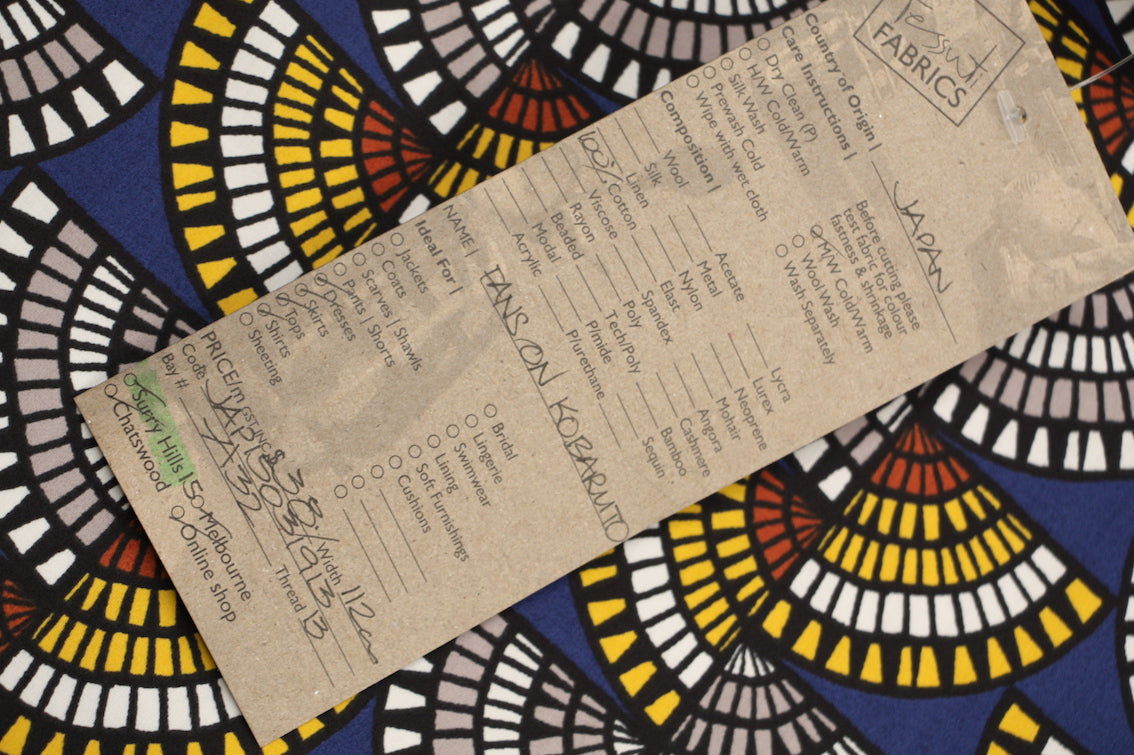 Tessuti
FABRICS
Country of Origin | JAPAN
Care Instructions |
Before cutting please
test fabric for colour
fastness & shrinkage
Dry Clean (P)
H/W Cold/Warm
Silk Wash
Prewash Cold
Wipe with wet cloth
M/W Cold/Warm
Wool Wash
Wash Separately
Composition |
Wool
Silk
Linen
100% Cotton
Viscose
Rayon
Beaded
Modal
Acrylic
Acetate
Metal
Nylon
Elast
Spandex
Poly
Tech/Poly
P/mide
P/urethane
Lycra
Lurex
Neoprene
Mohair
Angora
Cashmere
Bamboo
Sequin
NAME | FANS ON KOBARMTO
Ideal For |
Jackets
Coats
Scarves | Shawls
Pants | Shorts
Dresses
Skirts
Tops
Shirts
Sheeting
Bridal
Lingerie
Swimwear
Lining
Soft Furnishings
Cushions
PRICE/m GST INC $ 38/ Width 112cm
Code JAP1303/9L3 Thread 13
Bay # 7A32
Surry Hills | 50 Melbourne
Chatswood Online shop